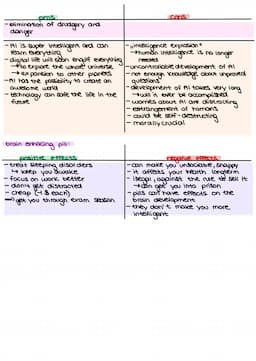 pros
cons
- elimination of drudgery and
danger
- AI is super intelligent and can
learn everything
- digital life will soon engulf everything
↳ to explore the whole universe
↳ expansion to other planets
- AI has the possibility to create an
awesome world
- technology can safe the life in the
future
- „intelligence explosion"
↳ human intelligence is no longer
needed
- uncontrollable development of AI
- not enough knowledge about unproved
questions
- development of AI takes very long
↳ will it ever be accomplished
- worries about AI are distracting
- estrangement of humans
- could be self-destructing
- morality crucial
brain enhacing pills
positive effects
negative effects
- treat sleeping disorders
↳ keep you awake
- focus on work better
- don't get distracted
- cheap (~1$ each)
→ get you through exam season
- can make you unsociable, snappy
- it affects your health longterm
- illegal, against the rule to sell it
↳ can get you into prison
- pills can have effects on the
brain development
- they don't make you more
intelligent